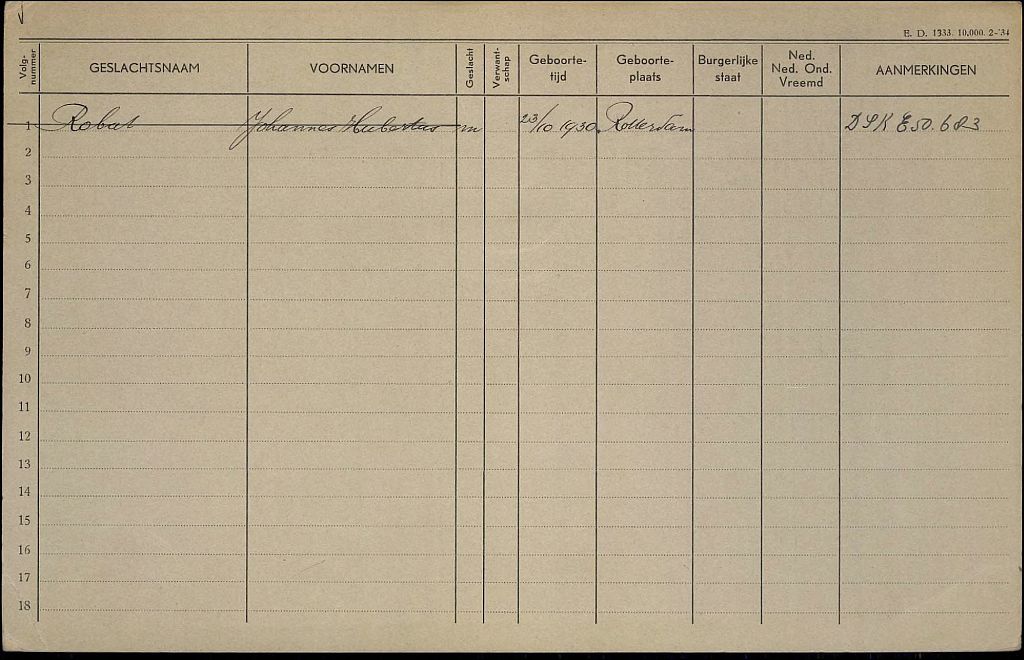 E. D. 1333. 10.000. 2-'34
Volg-nummer GESLACHTSNAAM VOORNAMEN Geslacht Verwant-schap Geboorte-tijd Geboorte-plaats Burgerlijke staat Ned. Ned. Ond. Vreemd AANMERKINGEN
1 Robat Johannes Hubertus m 23/10 1930 Rotterdam DSK E50.683
2
3
4
5
6
7
8
9
10
11
12
13
14
15
16
17
18